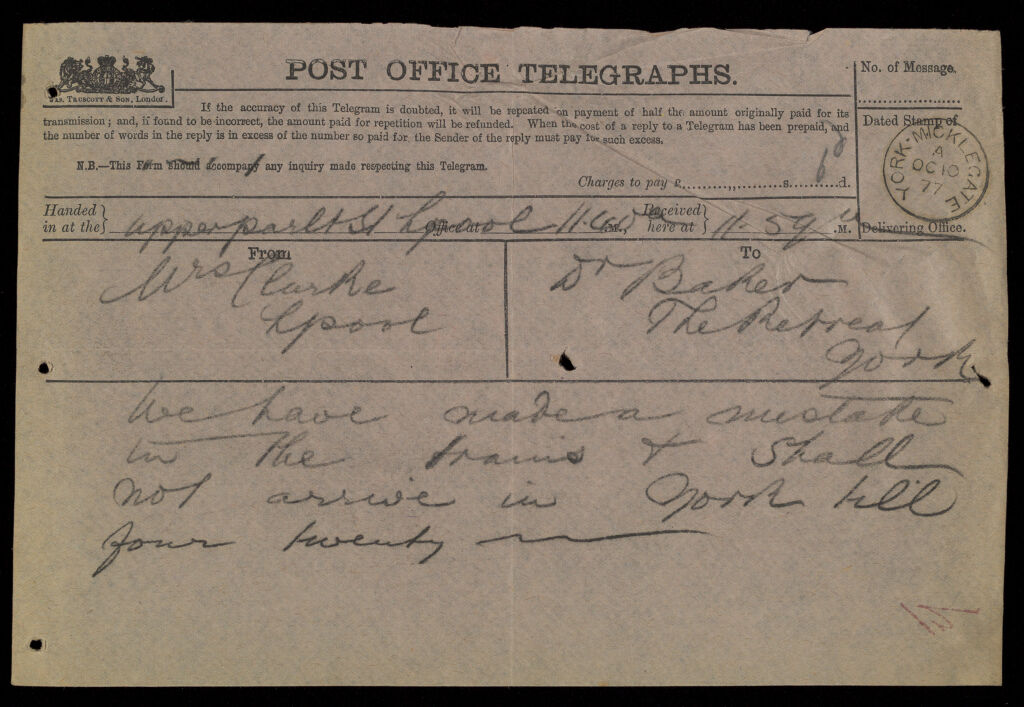 POST OFFICE TELEGRAPHS.
JAS. TRUSCOTT & SON, London.
If the accuracy of this Telegram is doubted, it will be repeated on payment of half the amount originally paid for its
transmission; and, if found to be incorrect, the amount paid for repetition will be refunded. When the cost of a reply to a Telegram has been prepaid, and
the number of words in the reply is in excess of the number so paid for, the Sender of the reply must pay for such excess.
N.B.—This Form should accompany any inquiry made respecting this Telegram.
Charges to pay £ s. d.
No. of Message.
Dated Stamp of
YORK·MICKLEGATE
A
OC 10
77
Delivering Office.
Handed in at the upper parlt St Lpool Office at 11.45 .M., Received here at 11-59 .M.
From
Mrs Clarke
Lpool
To
Dr Baker
The Retreat
York
We have made a mistake
in the trains & Shall
not arrive in York till
four twenty